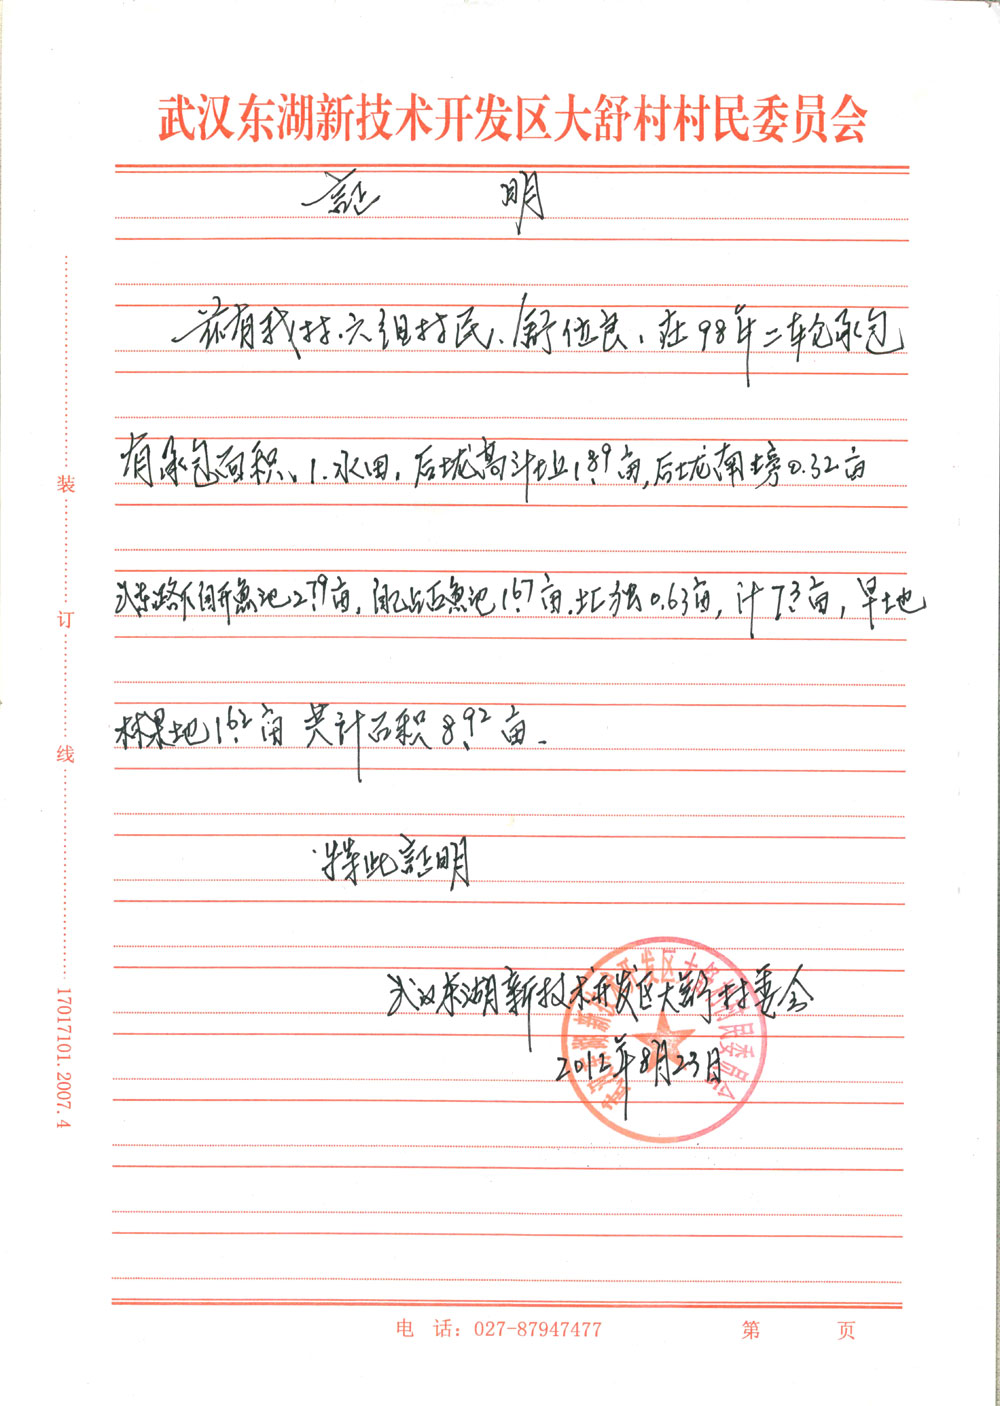 武汉东湖新技术开发区大舒村村民委员会
证 明
兹有我村六组村民、舒位良、在98年二轮承包
有承包面积、1.水田,后垅高斗址1.89亩,后垅南塝0.32亩
路下向开鱼池2.79亩,鱼池1.67亩.0.63亩,计7.3亩,旱地
林果地1.62亩 共计面积8.92亩.
特此证明
武汉东湖新技术开发区大舒村委会
2012年8月23日
武汉东湖新技术开发区大舒村村民委员会
装
订
线
17017101.2007.4
电 话:027-87947477 第 页